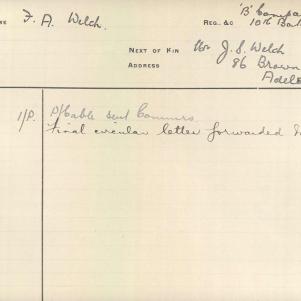 'B' Compa
F. A. Welch. REG. &C 10th Bat
NEXT OF KIN Mr J. S. Welch
ADDRESS 86 Brown
Adel
1/P. P/Cable sent Commrs.
Final circular letter forwarded